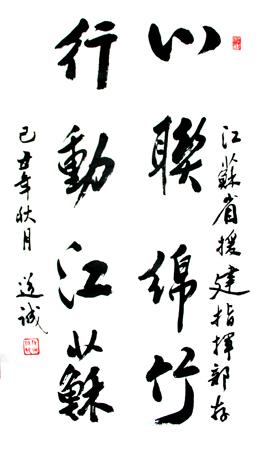 江蘇省援建指揮部存
心聯綿竹
行動江蘇
己丑年秋月